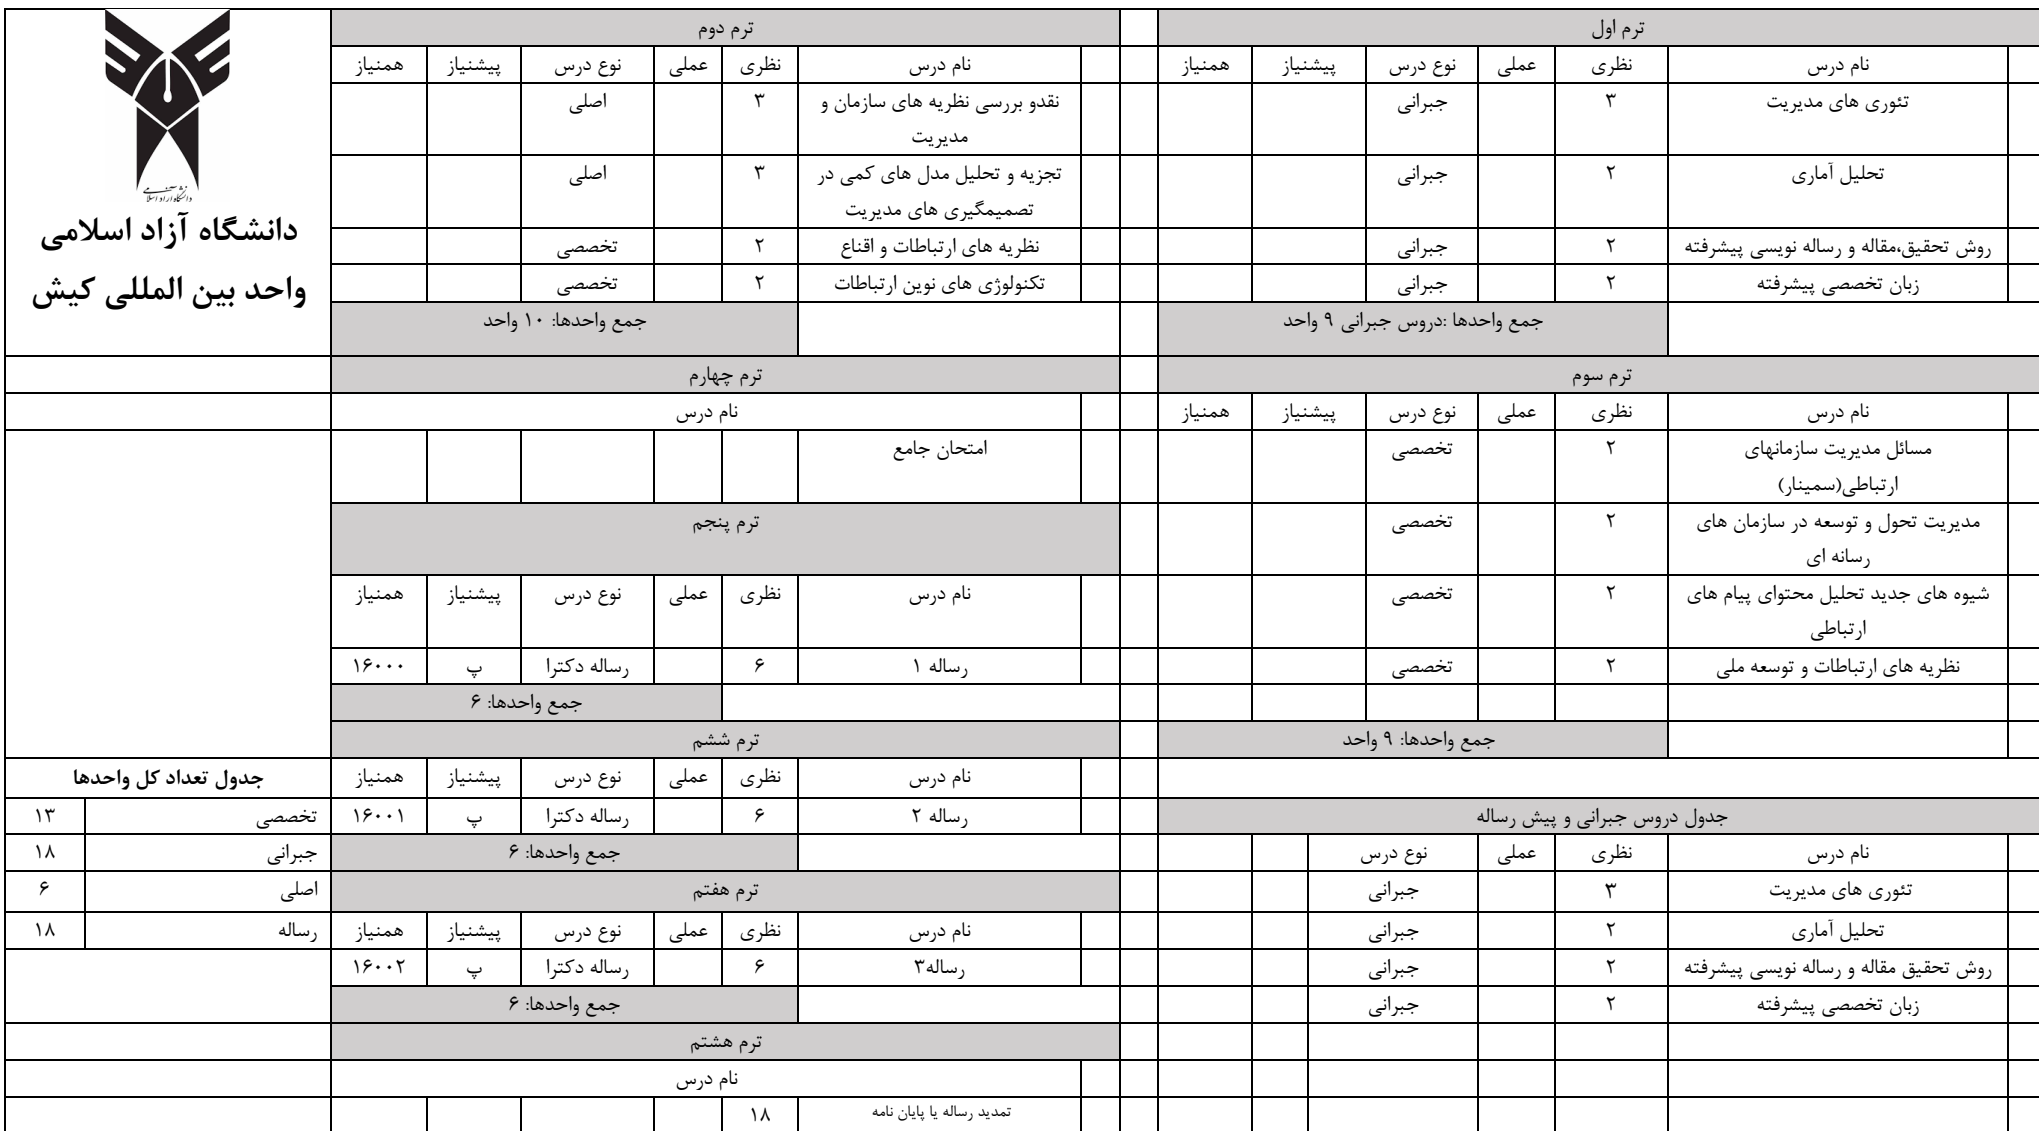 ترم اول
نام درس نظری عملی نوع درس پیشنیاز همنیاز
تئوری های مدیریت ۳ جبرانی
تحلیل آماری ۲ جبرانی
روش تحقیق،مقاله و رساله نویسی پیشرفته ۲ جبرانی
زبان تخصصی پیشرفته ۲ جبرانی
جمع واحدها :دروس جبرانی ۹ واحد
ترم دوم
نام درس نظری عملی نوع درس پیشنیاز همنیاز
نقدو بررسی نظریه های سازمان و ۳ اصلی
مدیریت
تجزیه و تحلیل مدل های کمی در ۳ اصلی
تصمیمگیری های مدیریت
نظریه های ارتباطات و اقناع ۲ تخصصی
تکنولوژی های نوین ارتباطات ۲ تخصصی
جمع واحدها: ۱۰ واحد
دانشگاه آزاد اسلامی
دانشگاه آزاد اسلامی
واحد بین المللی کیش
ترم سوم
نام درس نظری عملی نوع درس پیشنیاز همنیاز
مسائل مدیریت سازمانهای ۲ تخصصی
ارتباطی(سمینار)
مدیریت تحول و توسعه در سازمان های ۲ تخصصی
رسانه ای
شیوه های جدید تحلیل محتوای پیام های ۲ تخصصی
ارتباطی
نظریه های ارتباطات و توسعه ملی ۲ تخصصی
جمع واحدها: ۹ واحد
ترم چهارم
نام درس
امتحان جامع
ترم پنجم
نام درس نظری عملی نوع درس پیشنیاز همنیاز
رساله ۱ ۶ رساله دکترا پ ۱۶۰۰۰
جمع واحدها: ۶
ترم ششم
نام درس نظری عملی نوع درس پیشنیاز همنیاز
رساله ۲ ۶ رساله دکترا پ ۱۶۰۰۱
جمع واحدها: ۶
ترم هفتم
نام درس نظری عملی نوع درس پیشنیاز همنیاز
رساله۳ ۶ رساله دکترا پ ۱۶۰۰۲
جمع واحدها: ۶
ترم هشتم
نام درس
تمدید رساله یا پایان نامه ۱۸
جدول دروس جبرانی و پیش رساله
نام درس نظری عملی نوع درس
تئوری های مدیریت ۳ جبرانی
تحلیل آماری ۲ جبرانی
روش تحقیق مقاله و رساله نویسی پیشرفته ۲ جبرانی
زبان تخصصی پیشرفته ۲ جبرانی
جدول تعداد کل واحدها
تخصصی ۱۳
جبرانی ۱۸
اصلی ۶
رساله ۱۸